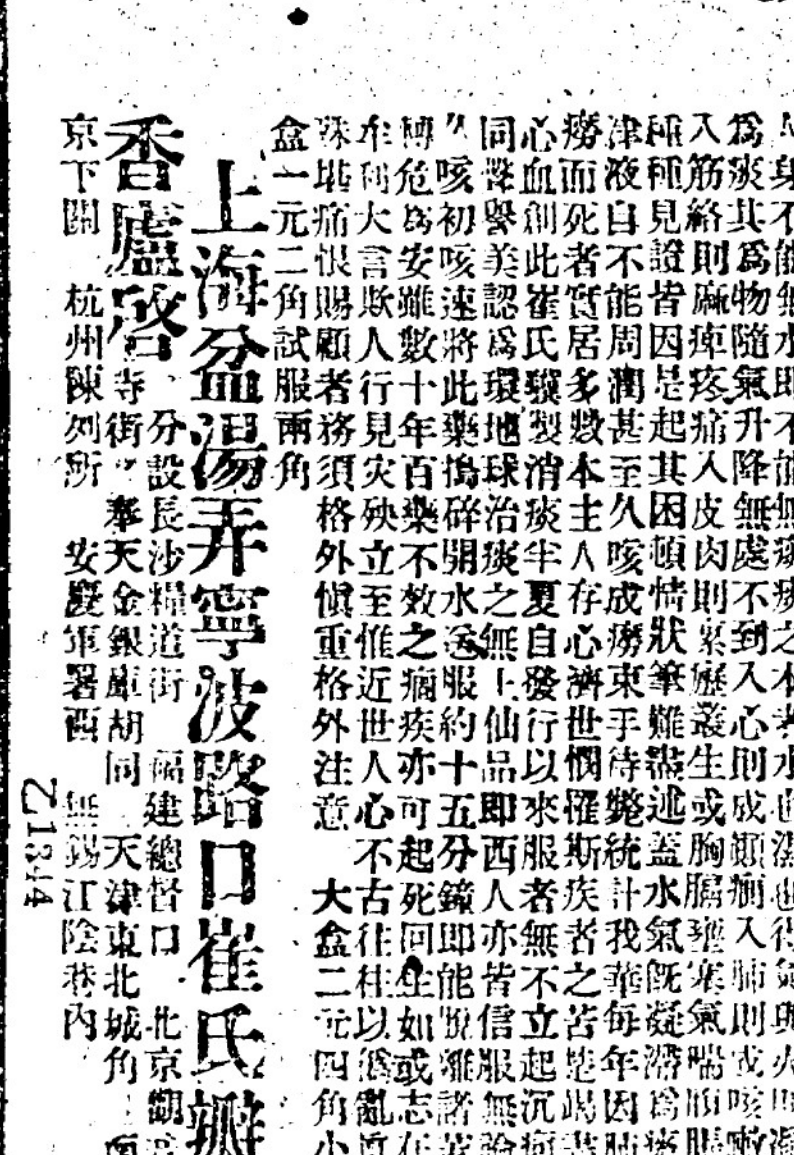 人身不能無水即不能無痰痰之本者水也濕也得氣與火則
為痰其為物隨氣升降無處不到入心則成顛癇入肺則或咳嗽
入筋絡則麻痺疼痛入皮肉則瘰癧叢生或胸膈壅塞氣喘
種種見證皆因是起其困頓情狀筆難盡述蓋水氣既凝滯為痰
津液自不能周潤甚至久咳成癆束手待斃統計我華每年因肺
癆而死者實居多數本主人存心濟世憫罹斯疾者之苦
心血創此崔氏瓣製消痰半夏自發行以來服者無不立起沉疴
同聲譽美認為環地球治痰之無上仙品即西人亦皆信服無論
久咳初咳速將此藥搗碎開水送服約十五分鐘即能脫離諸苦
轉危為安雖數十年百藥不效之痼疾亦可起死回生如或志在
牟利大言欺人行見灾殃立至惟近世人心不古往往以偽亂真
殊堪痛恨賜顧者務須格外慎重格外注意 大盒二元四角小
盒一元二角試服兩角
上海盆湯弄寧波路口崔氏瓣
香廬啓
分設長沙糧道街 福建總督口 北京觀
寺街 奉天金銀庫胡同 天津東北城角
京下關 杭州陳列所 安慶軍署西 無錫江陰巷內
Z1344